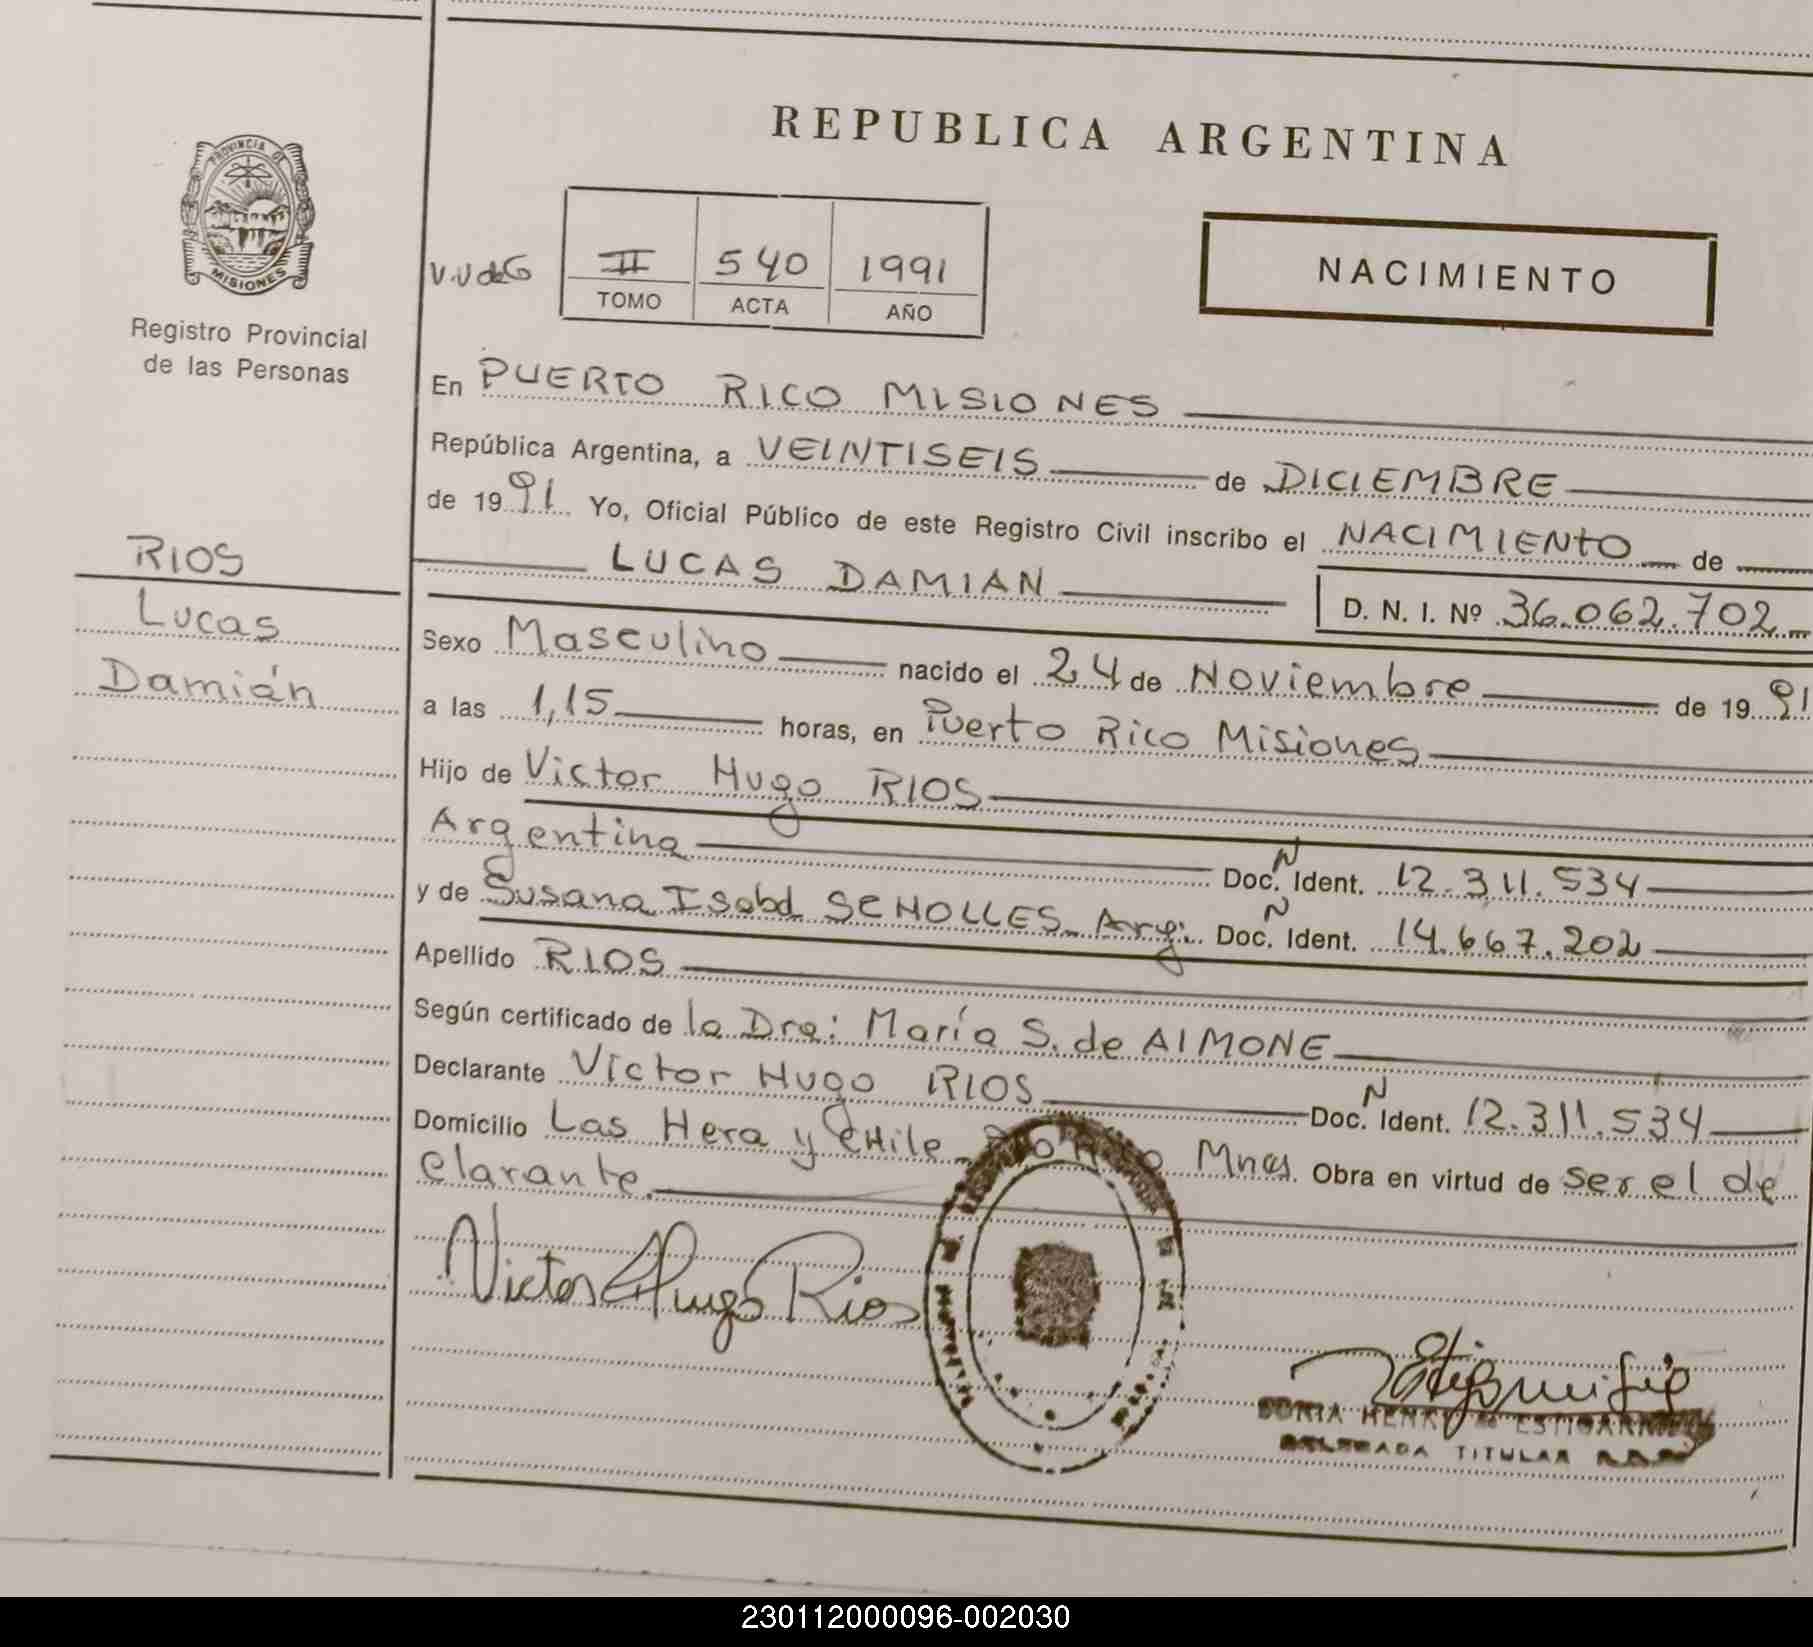 REPUBLICA ARGENTINA
PROVINCIA DE
MISIONES
Registro Provincial
de las Personas
V.V de G
II 540 1991
TOMO ACTA AÑO
NACIMIENTO
En PUERTO RICO MISIONES
República Argentina, a VEINTISEIS de DICIEMBRE
de 1991 Yo, Oficial Público de este Registro Civil inscribo el NACIMIENTO de
LUCAS DAMIAN D. N. I. Nº 36.062.702
RIOS
Lucas
Damián
Sexo Masculino nacido el 24 de Noviembre de 1991
a las 1,15 horas, en Puerto Rico Misiones
Hijo de Victor Hugo RIOS
Argentina Doc. N Ident. 12.311.534
y de Susana Isabel SCHOLLES Arg. Doc. N Ident. 14.667.202
Apellido RIOS
Según certificado de la Dra: María S. de AIMONE
Declarante Victor Hugo RIOS Doc. N Ident. 12.311.534
Domicilio Las Hera y CHile Mnes. Obra en virtud de ser el de
clarante.
Victor Hugo Rios
TITULAR
230112000096-002030